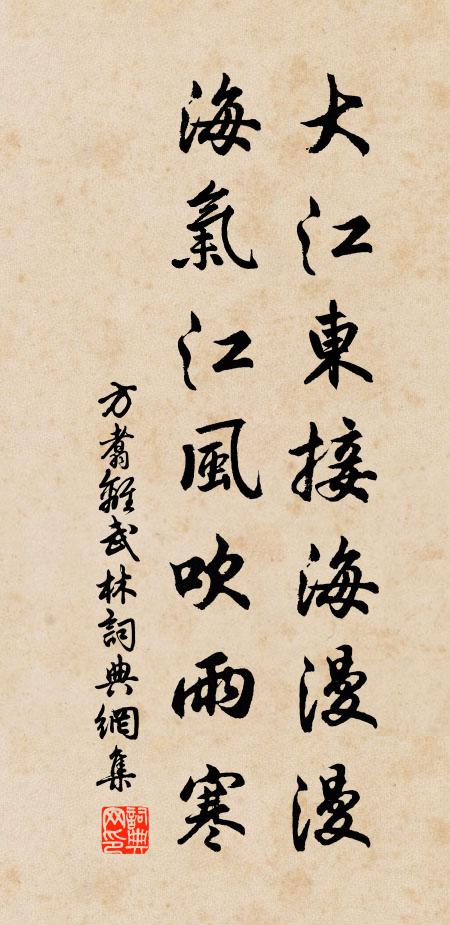 大江東接海漫漫
海氣江風吹雨寒
方翥離武林詞典網集
詞典網印